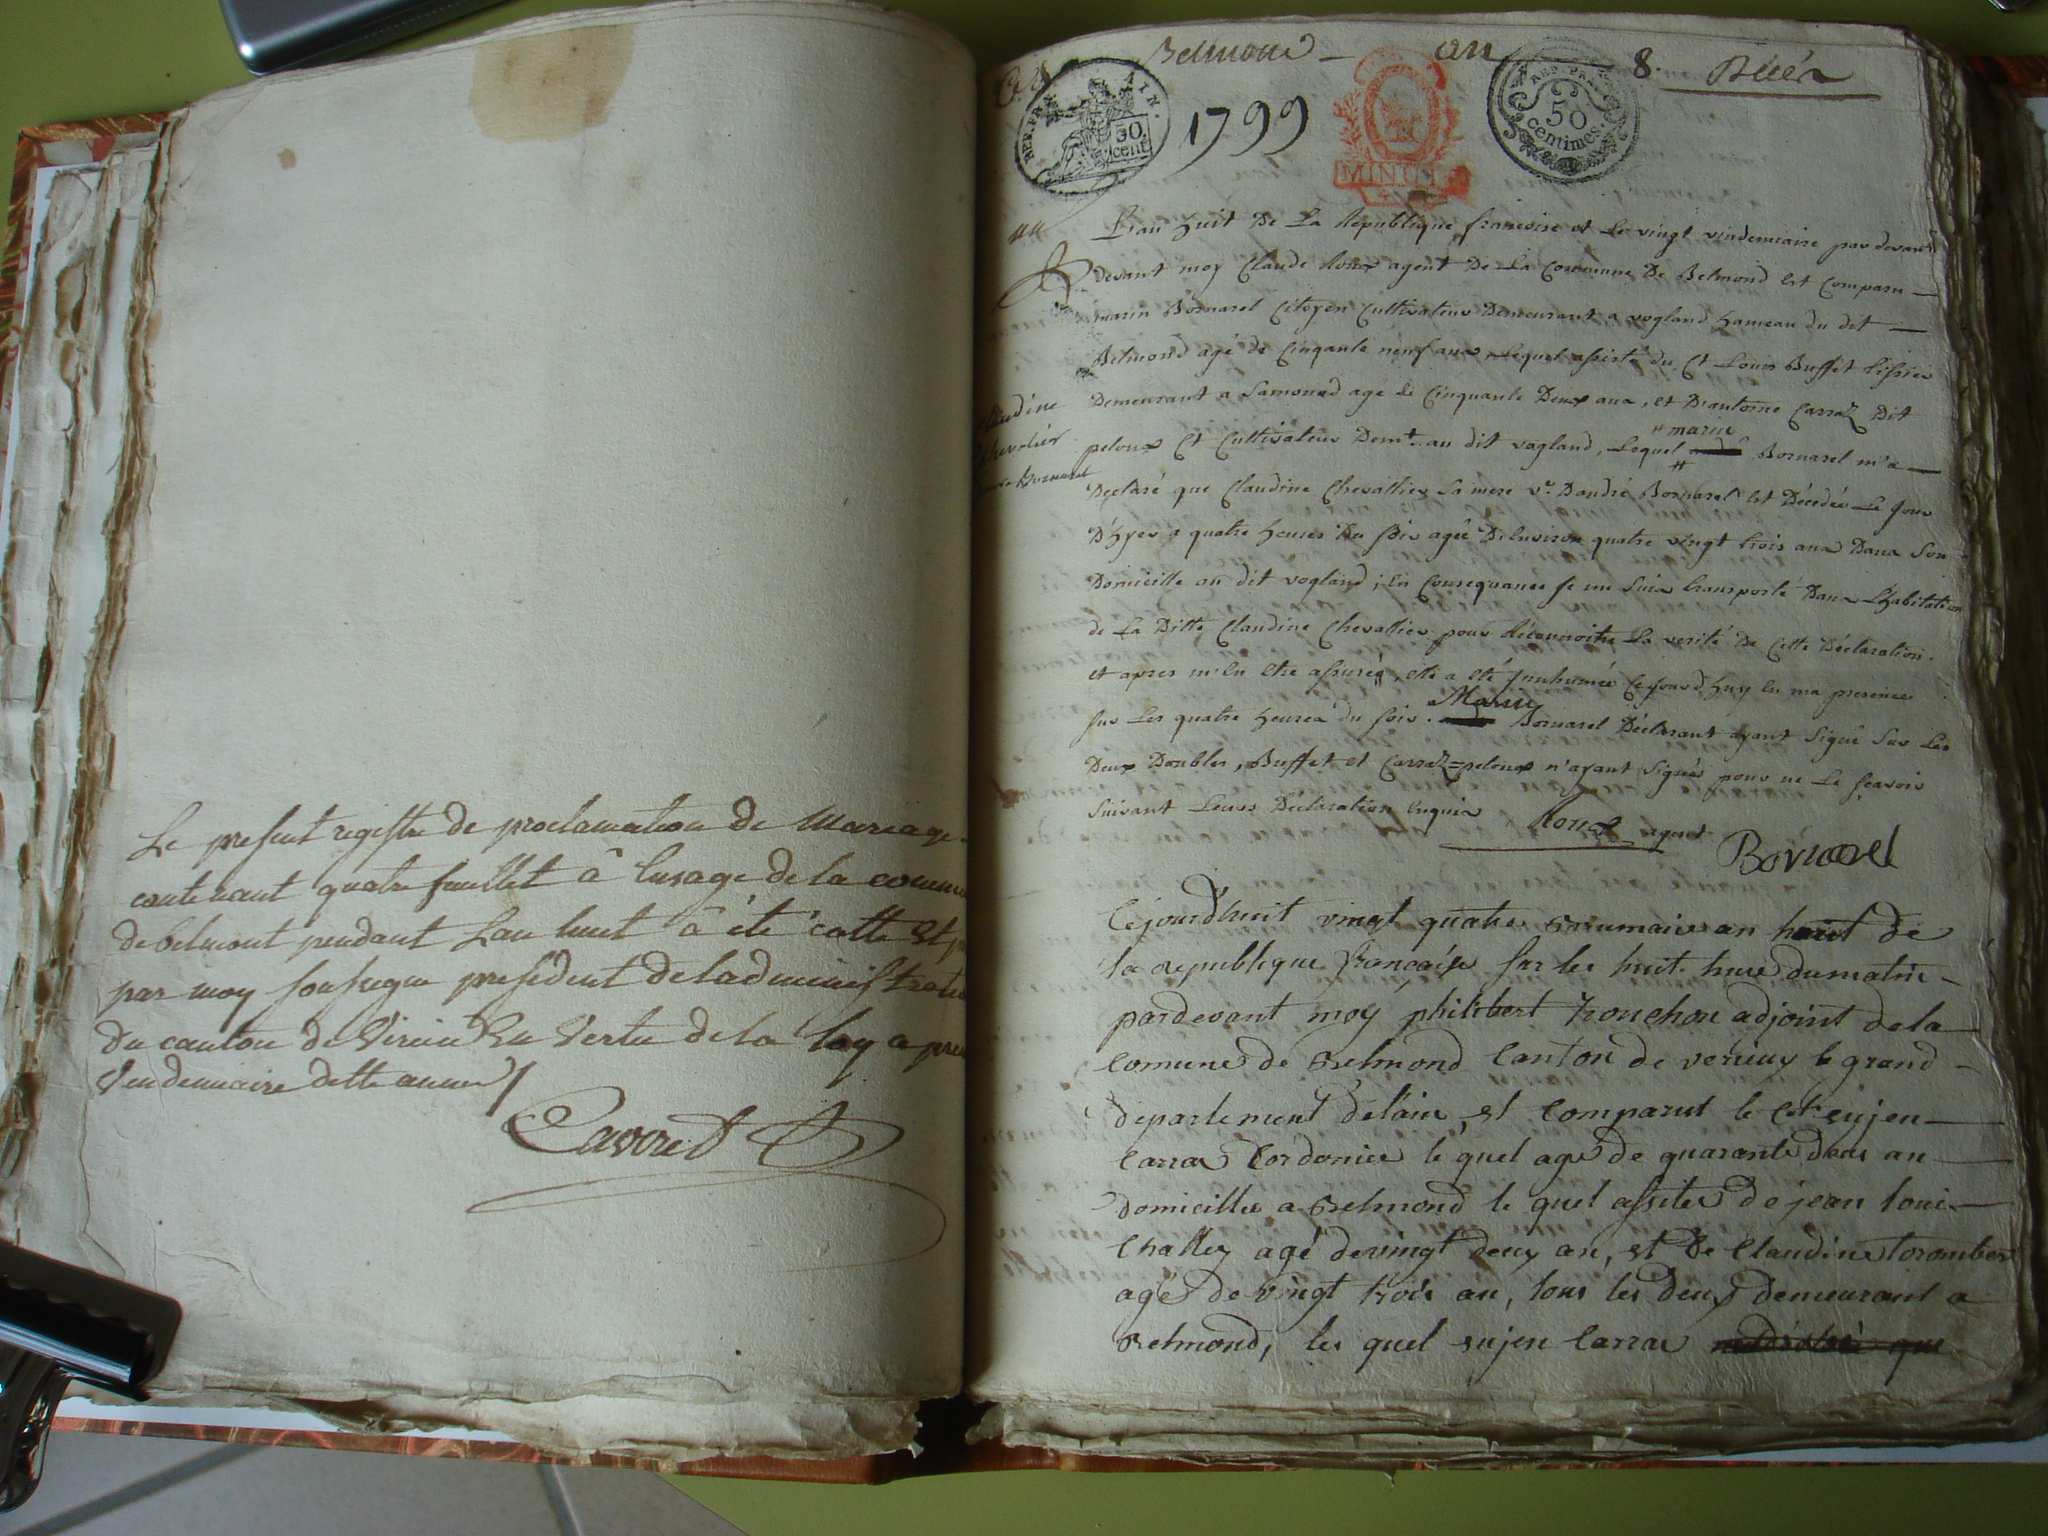 Le present registre de proclamation de Mariage
contenant quatre feuillet â lusage de la commu
de belmont pendant Lan huit â été cotté et p
par moy soussigne president deladministratio
du canton de Virieu En Vertu de la loy a pre
Vendemiaire dette annee
Cavoret
Belmond - an 8. Décés
REP. FRA. AIN.
50 cent
1799
MINUTE
REP. FRA.
50
centimes.
L'an huit De La République francoise et Le vingt vindemiaire par devant
devant moy Claude Roux agent De La Commune De Belmond Est Comparu
marin Bornarel Citoyen Cultivateur Demeurant a vogland hameau du dit
Belmond agé de Cinqante neuf ans, Lequel assisté du Ct Louis Buffet tissier
Demeurant a Samonod agé de Cinquante Deux ans, et D'antoine Carraz Dit
peloux Ct Cultivateur Demt. au dit vogland, Lequel # marin Bornarel m'a
Claudine
Chevalier
Bornarel
Déclaré que Claudine Chevallier sa mere ve. D'andré Bornarel Est Décedée Le jour
D'hyer a quatre heures Du soir agée D'Environ quatre vingt trois ans Dans Son
Domicille au dit vogland ; En Consequance je me suis transporté Dans L'habitation
de La Ditte Claudine Chevallier pour Reconnoitre La verité De Cette Déclaration.
et apres m'En Etre assurée, elle a été Innhumée Cejourd'huy En ma presence
sur Les quatre heures du soir. Marin Bornarel Déclarant ayant signé sur Les
Deux Doubles, Buffet et Carraz=peloux n'ayant signés pour ne Le sçavoir
suivant Leurs Déclaration Enquis Roux agent
Bornarel
Cejourdhuit vingt quatre Brumaire an huit de
la republique française sur les huit hure dumatin
pardevant moy philibert tronchon adjoint de la
comune de Belmond Canton de verieux le grand
departement delain, et comparut le Cet eujen
Carra Cordonier le quel age de quarante deus an
domicillie a Belmond le quel assiter de jean loui
Challey agé devingt deux an, et de Claudine torombert
agé de vingt trois an, tous les deux demeurant a
Belmond, les quel eujen Carra